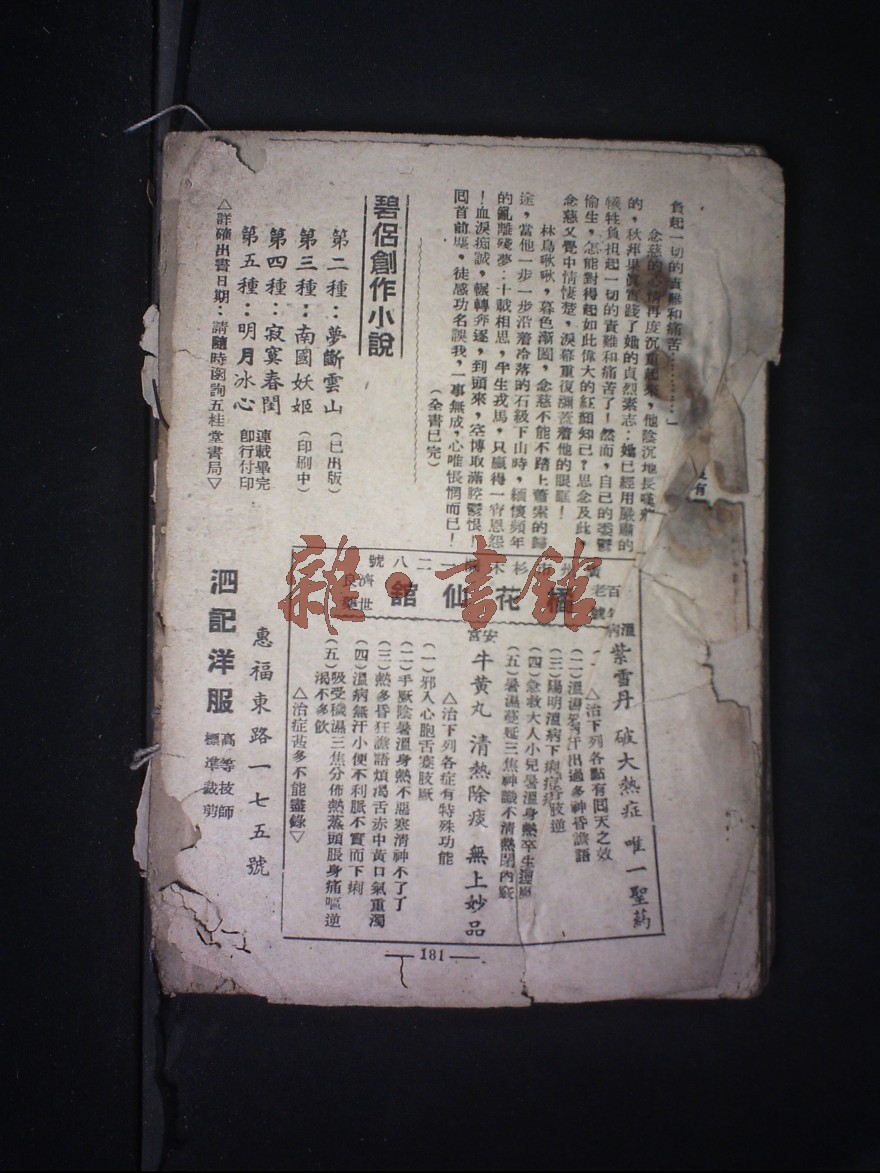 負起一切的責難和痛苦…………」
念慈的心情再度沉重起來，他陰沉地長嘆
的，秋萍果眞實踐了她的貞烈素志：她已經用嚴肅的
犧牲負担起一切的責難和痛苦了！然而，自己的委鬱
偷生，怎能對得起如此偉大的紅顏知己？思念及此，
念慈又覺中情悽楚，淚幕重復彌蓋着他的眼眶！
林鳥啾啾，暮色漸闔，念慈不能不踏上蕭索的歸
途，當他一步一步沿着冷落的石級下山時，緬懷頻年
的亂離殘夢：十載相思，半生戎馬，只贏得一宵恩怨
！血淚痴誠，輾轉奔逐，到頭來，空博取滿腔鬱恨！
囘首前塵，徒感功名誤我，一事無成，心唯悵惘而已！
（全書已完）
碧侶創作小說
第二種：夢斷雲山（已出版）
第三種：南國妖姬（印刷中）
第四種：寂寞春閨
第五種：明月冰心
連載畢完
卽行付印
△詳確出書日期：請隨時函詢五桂堂書局▽
沒有
橘花仙館
濟世
良藥
二八號
溫病
紫雪丹 破大熱症 唯一聖葯
△治下列各點有囘天之效
（二）溫濕病汗出過多神昏譫語
（三）陽明溫病下痢譫語肢逆
（四）急救大人小兒暑溫身熱卒生溫瘧
（五）暑濕蔓延三焦神識不清熱閉內竅
安宮
牛黃丸 清熱除痰 無上妙品
△治下列各症有特殊功能
（一）邪入心胞舌蹇肢厥
（二）手厥陰暑溫身熱不惡寒清神不了了
（三）熱多昏狂譫語煩渴舌赤中黃口氣重濁
（四）溫病無汗小便不利脈不實而下痢
（五）吸受穢濕三焦分佈熱蒸頭脹身痛嘔逆
渴不多飲
△治症甚多不能盡錄▽
泗記洋服
高等技師
標準裁剪
惠福東路一七五號
181
雜·書館